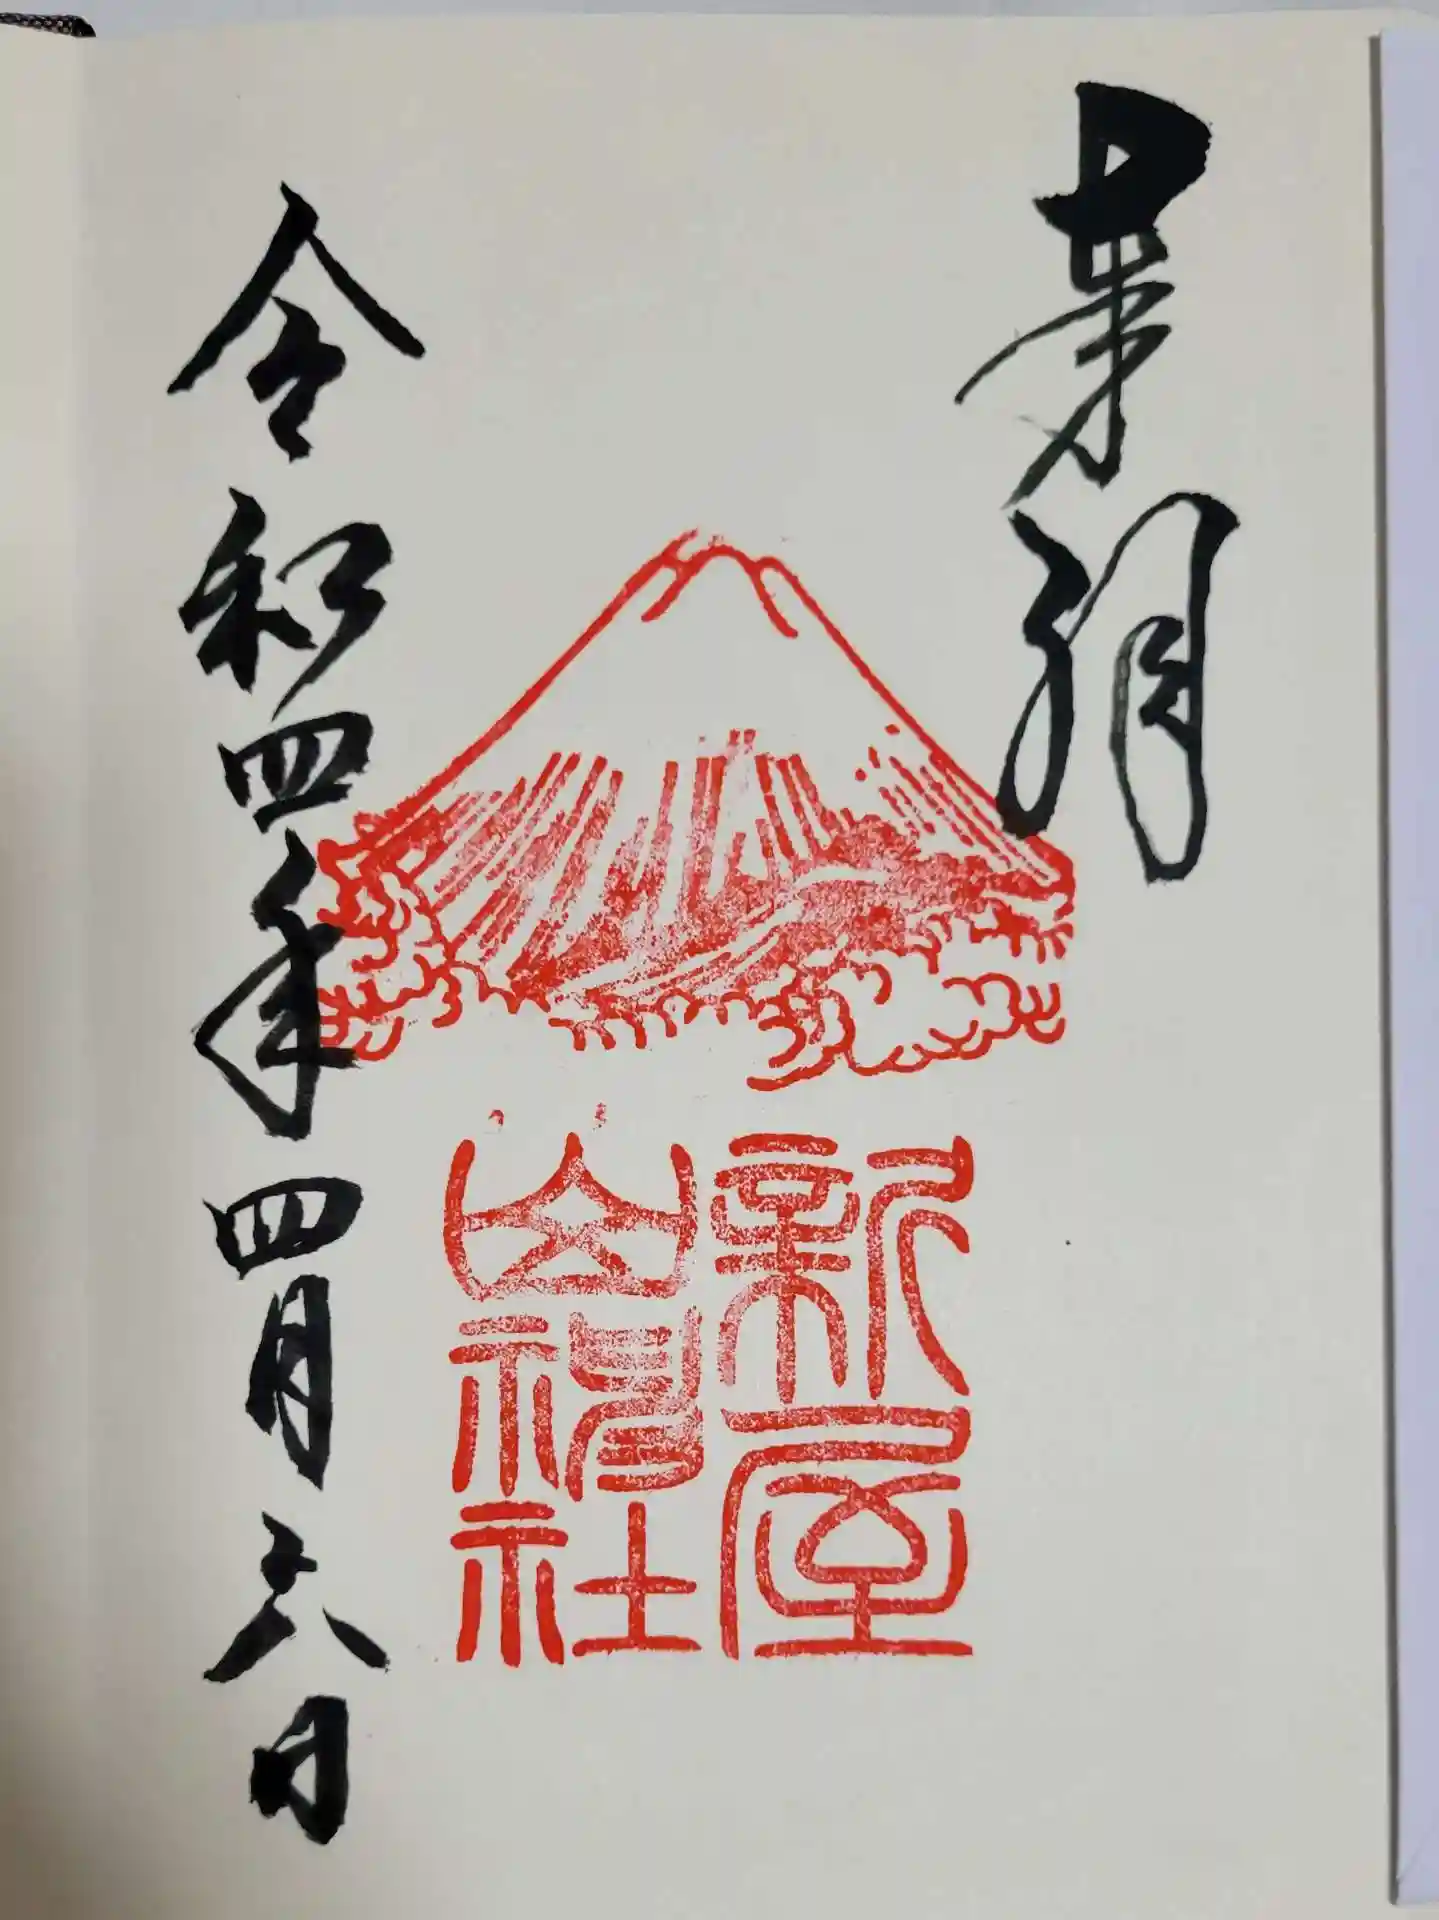 新屋
山神社
令和四年四月六日